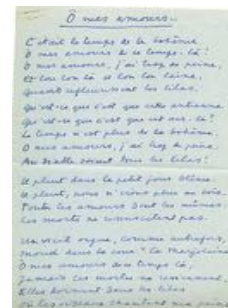 Ô mes amours...
C'était le temps de la bohème,
Ô mes amours de ce temps-là !
Ô mes amours, j'ai trop de peine,
Et lon lon là et lon lon laine,
Quand refleuriront les lilas.
Qu'est-ce que c'est que cette
Qu'est-ce que c'est que cet
Le temps n'est plus de la bohème,
Ô mes amours, j'ai trop de peine.
Au diable soient tous les lilas !
Il pleut dans le petit jour blême
Il pleut, nous n'irons plus au bois.
Toutes les amours sont les mêmes
Les morts ne ressuscitent pas.
Un vieil orgue, comme autrefois,
Moud dans la cour la Marjolaine
Ô mes amours de ce temps-là,
Jamais les mortes ne reviennent.
Elles dorment sous les lilas
Où les oiseaux chantent